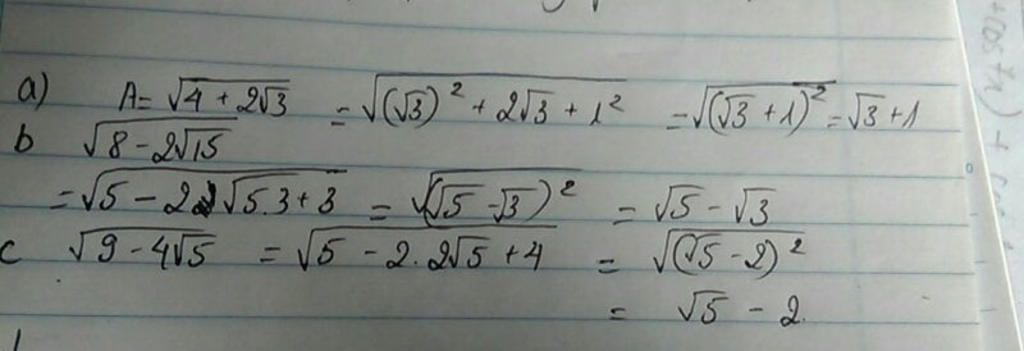 a) A = √(4 + 2√3) = √((√3)² + 2√3 + 1²) = √((√3 + 1)²) = √3 + 1
b √(8 - 2√15)
= √(5 - 2√(5.3) + 3) = √((√5 - √3)²) = √5 - √3
c √(9 - 4√5) = √(5 - 2.2√5 + 4) = √((√5 - 2)²)
= √5 - 2.